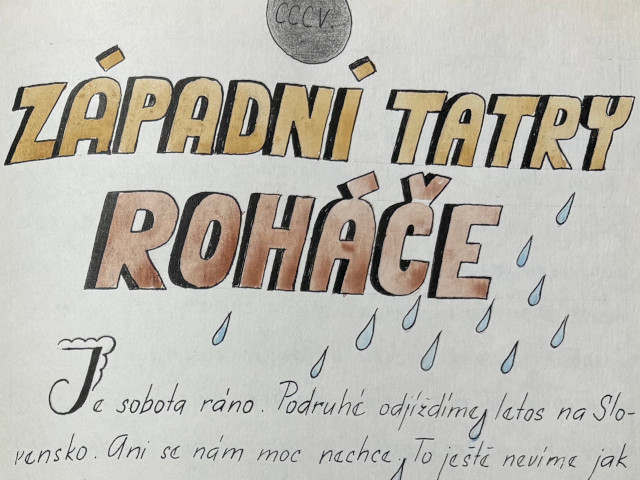 CCCV.
ZÁPADNÍ TATRY
ROHÁČE
Je sobota ráno. Podruhé odjíždíme letos na Slo-
vensko. Ani se nám moc nechce. To ještě nevíme jak